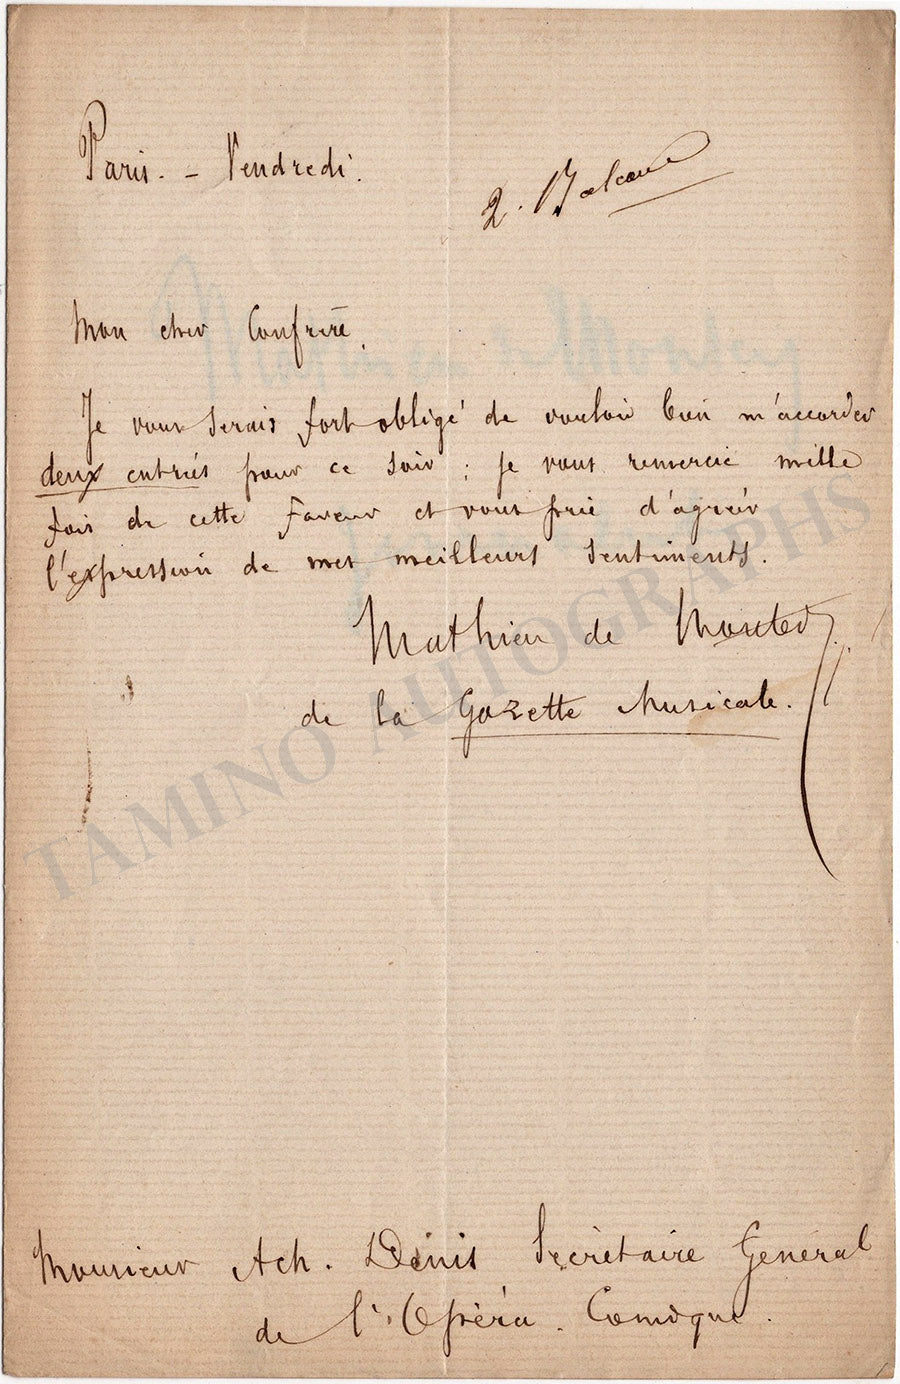 Paris. - Vendredi.
2. Balcon
Mon cher Confrère,
Je vous serais fort obligé de vouloir bien m'accorder
deux entrées pour ce soir ; je vous remercie mille
fois de cette faveur et vous prie d'agréer
l'expression de mes meilleurs sentiments.
Mathieu de Monter
de la Gazette Musicale.
TAMINO AUTOGRAPHS
Monsieur Ach. Denis Secrétaire Général
de l'Opéra. Comique.